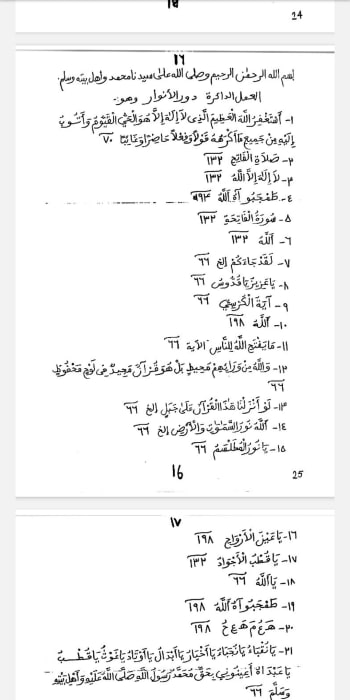 14
١٦
بسم الله الرحمٰن الرحيم وصلى الله على سيدنا محمد واهل بيته وسلم
العمل الدائرة دور الأنوار وهو:
١- أَسْتَغْفِرُ اللهَ الْعَظِيمَ الَّذِي لاَ إِلَهَ إِلاَّ هُوَ الْحَيَّ الْقَيُّومَ وَأَتُوبُ
إِلَيْهِ مِنْ جَمِيعِ مَا أَكْرَهُ قَوْلاً وَفِعْلاً حَاضِرًا وَغَائِبًا ٧٠
٢- صَلاَةُ الْفَاتِحِ ١٣٢
٣- لاَ إِلَهَ إِلاَّ اللهُ ١٣٢
٤- طَهْجَبُو آهُ اللهُ ٤٩٣
٥- سُورَةُ الْفَاتِحَةِ ١٣٢
٦- اَللهُ ١٣٢
٧- لَقَدْ جَاءَكُمْ إلخ ٦٦
٨- يَا عَزِيزُ يَا قُدُّوسُ ٦٦
٩- آيَةُ الْكُرْسِيِّ ٦٦
١٠- اَللهُ ١٩٨
١١- مَا يَفْتَحِ اللهُ لِلنَّاسِ الآية ٦٦
١٢- وَاللهُ مِنْ وَرَائِهِمْ مُحِيطٌ بَلْ هُوَ قُرْآنٌ مَجِيدٌ فِي لَوْحٍ مَحْفُوظٍ
٦٦
١٣- لَوْ أَنْزَلْنَا هَذَا الْقُرْآنَ عَلَى جَبَلٍ إلخ ٦٦
١٤- اَللهُ نُورُ السَّمٰوَاتِ وَالأَرْضِ إلخ ٦٦
١٥- يَا نُورُ الْمُطَلْسَمُ ٦٦
16
25
١٧
١٦- يَا عَيْنَ الأَرْوَاحِ ١٩٨
١٧- يَا قُطْبُ الأَجْوَادُ ١٣٢
١٨- يَا اللهُ ٦٦
١٩- طَهْجَبُو آهُ اللهُ ١٩٨
٢٠- هَ عُ مْ هَ عُ حُ ١٩٨
٢١- يَا نُقَبَاءُ يَا نُجَبَاءُ يَا أَخْيَارُ يَا أَبْدَالُ يَا أَوْتَادُ يَا غَوْثُ يَا قُطْبُ
يَا عِبَدَاهُ أَعِينُونِي بِحَقِّ مُحَمَّدٍ رَسُولِ اللهِ صَلَّى اللهُ عَلَيْهِ وَأَهْلِ بَيْتِهِ
وَسَلَّمَ ٦٦